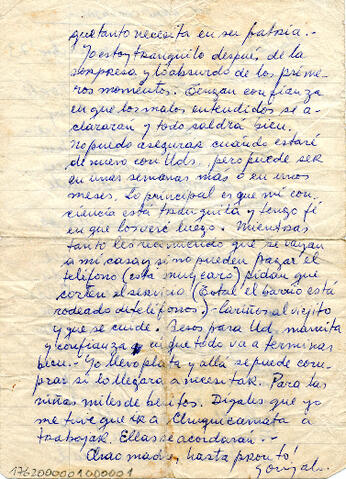 que tanto necesita en su patria.-
Yo estoy tranquilo después de la
sorpresa y lo absurdo de los prime-
ros momentos. Tengan confianza
en que los malos entendidos se a-
clararán y todo saldrá bien.
No puedo asegurar cuando estaré
de nuevo con Uds. pero puede ser
en unas semanas más o en unos
meses. Lo principal es que mi con-
ciencia está tranquila y tengo fé
en que los veré luego. Mientras
tanto les recomiendo que se vayan
a mi casa y si no pueden pagar el
teléfono (está muy caro) pidan que
corten el servicio (Total el barrio está
rodeado de teléfonos).- Cariños al viejito
y que se cuide. Besos para Ud, mamita
y confianza en que todo va a terminar
bien.- Yo llevo plata y allá se puede com-
prar si lo llegara a necesitar. Para las
niñas miles de besitos. Dígales que yo
me tuve que ir a Chuquicamata a
trabajar. Ellas se acordarán.-
Chao madre, hasta pronto!
Gonzalo.
1762000001000001